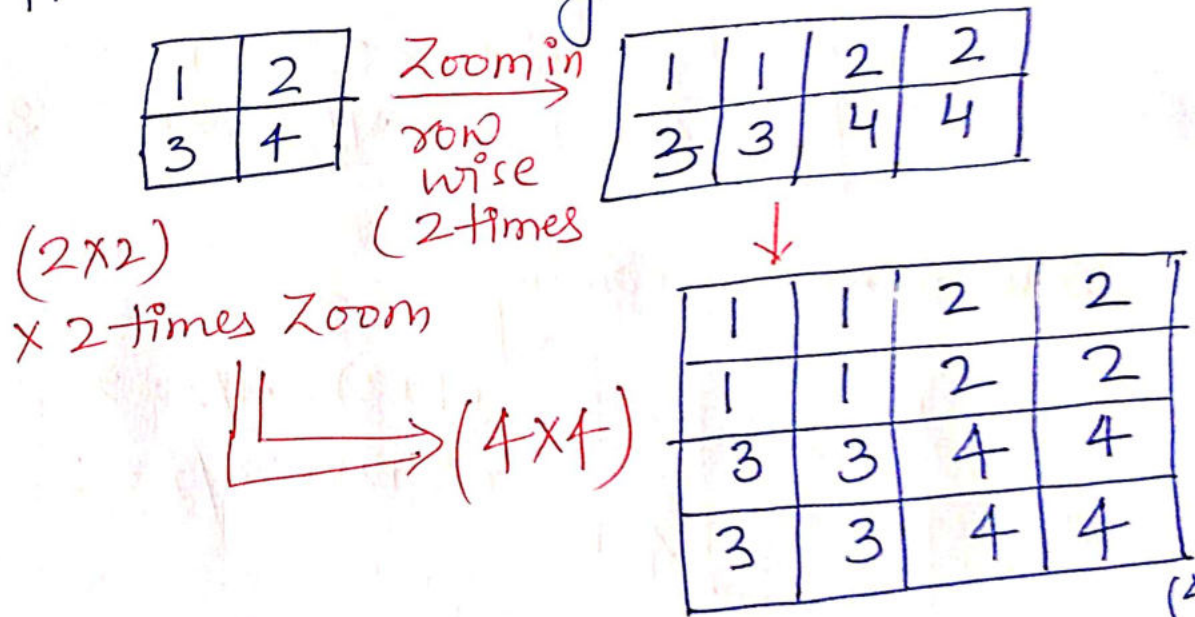 1 2
3 4
Zoom in
row
wise
(2 times
1 1 2 2
3 3 4 4
(2×2)
× 2 times Zoom
(4×4)
1 1 2 2
1 1 2 2
3 3 4 4
3 3 4 4